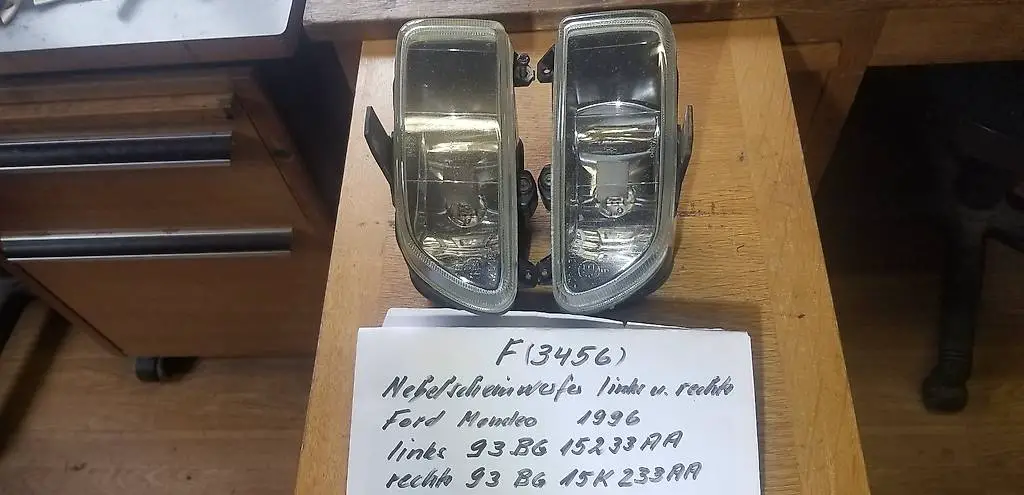 F (3456)
Nebelscheinwerfer links u. rechts
Ford Mondeo 1996
links 93 BG 15233 AA
rechts 93 BG 15K 233 AA